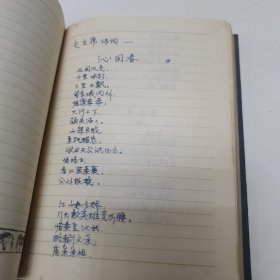 毛主席诗词——
沁园春 雪
北国风光,
千里冰封,
万里雪飘。
望长城内外,
惟余莽莽,
大河上下,
顿失滔滔。
山舞银蛇,
原驰蜡象,
欲与天公试比高。
须晴日,
看红装素裹,
分外妖娆。
江山如此多娇,
引无数英雄竞折腰。
惜秦皇汉武,
略输文采,
唐宗宋祖